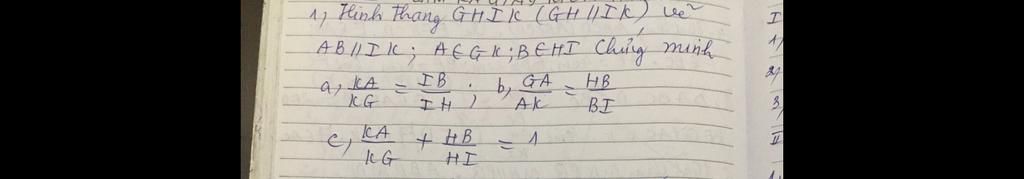 1, Hình thang GHIK (GH // IK) vẽ
AB // IK ; A ∈ GK ; B ∈ HI Chứng minh
a, KA/KG = IB/IH ; b, GA/AK = HB/BI
c, KA/KG + HB/HI = 1
I
1/
2/
3,
II
1.